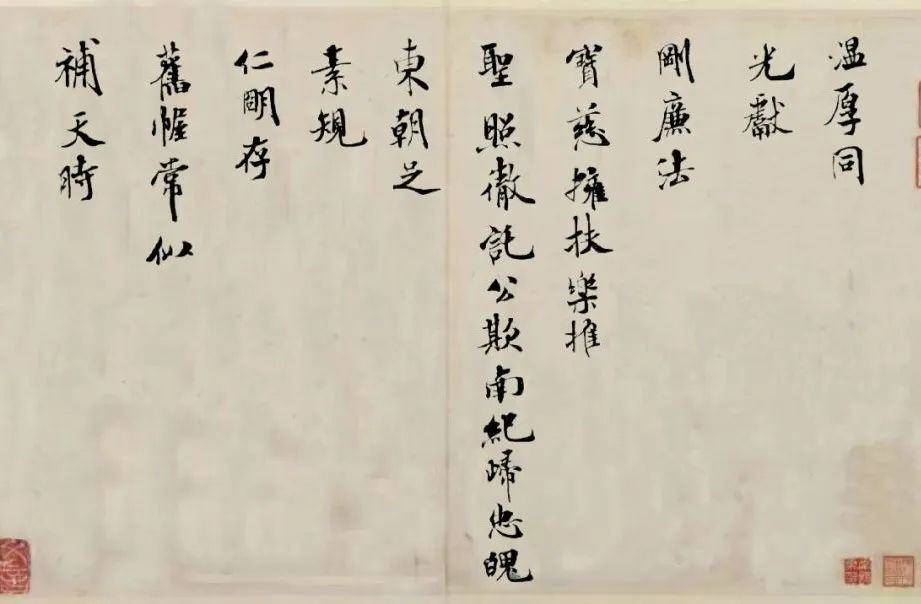 温厚同
光獻
剛廉法
寶慈擁扶樂推
聖照徹託公欺南紀歸忠魄
東朝足
素規
仁明存
舊幄常似
補天時